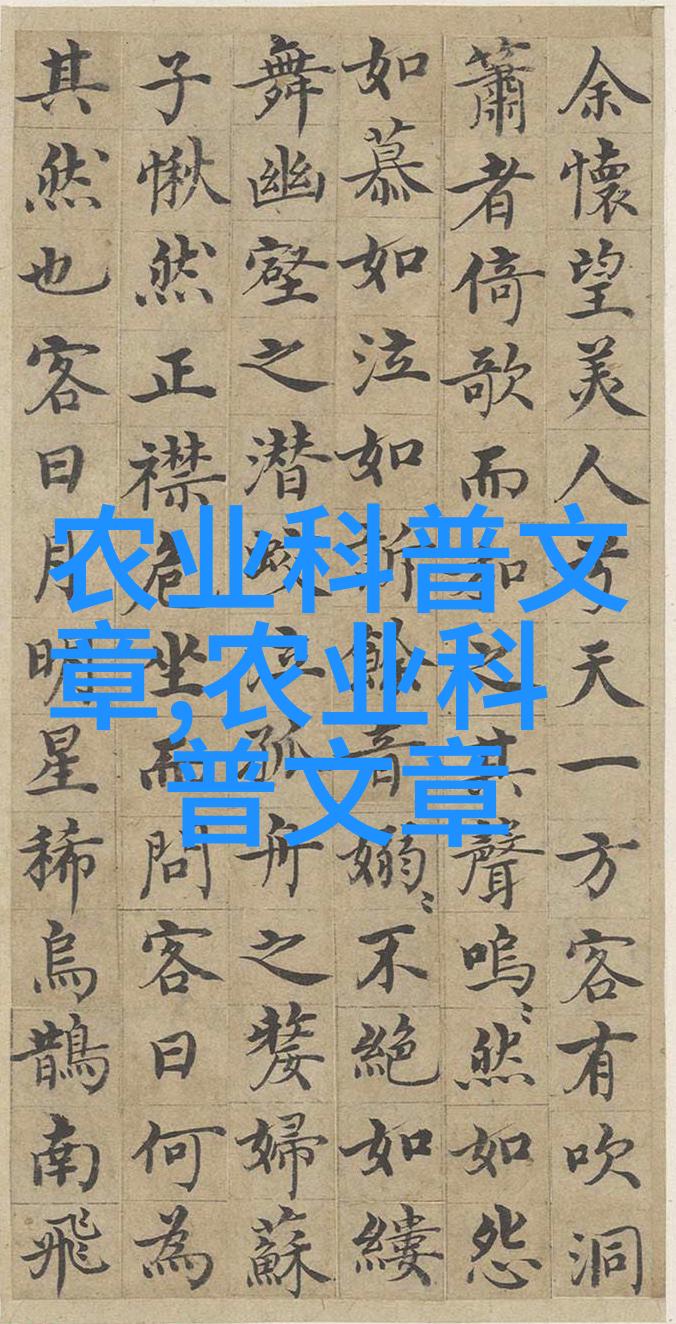 余懷望美人兮天一方客有吹洞
簫者倚歌而和之其聲嗚〻然如怨
如慕如泣如訴餘音嫋〻不絕如縷
舞幽壑之潜蛟泣孤舟之嫠婦蘇
子愀然正襟危坐而問客曰何為
其然也客曰月明星稀烏鵲南飛
农业科普文
章,农业科
普文章